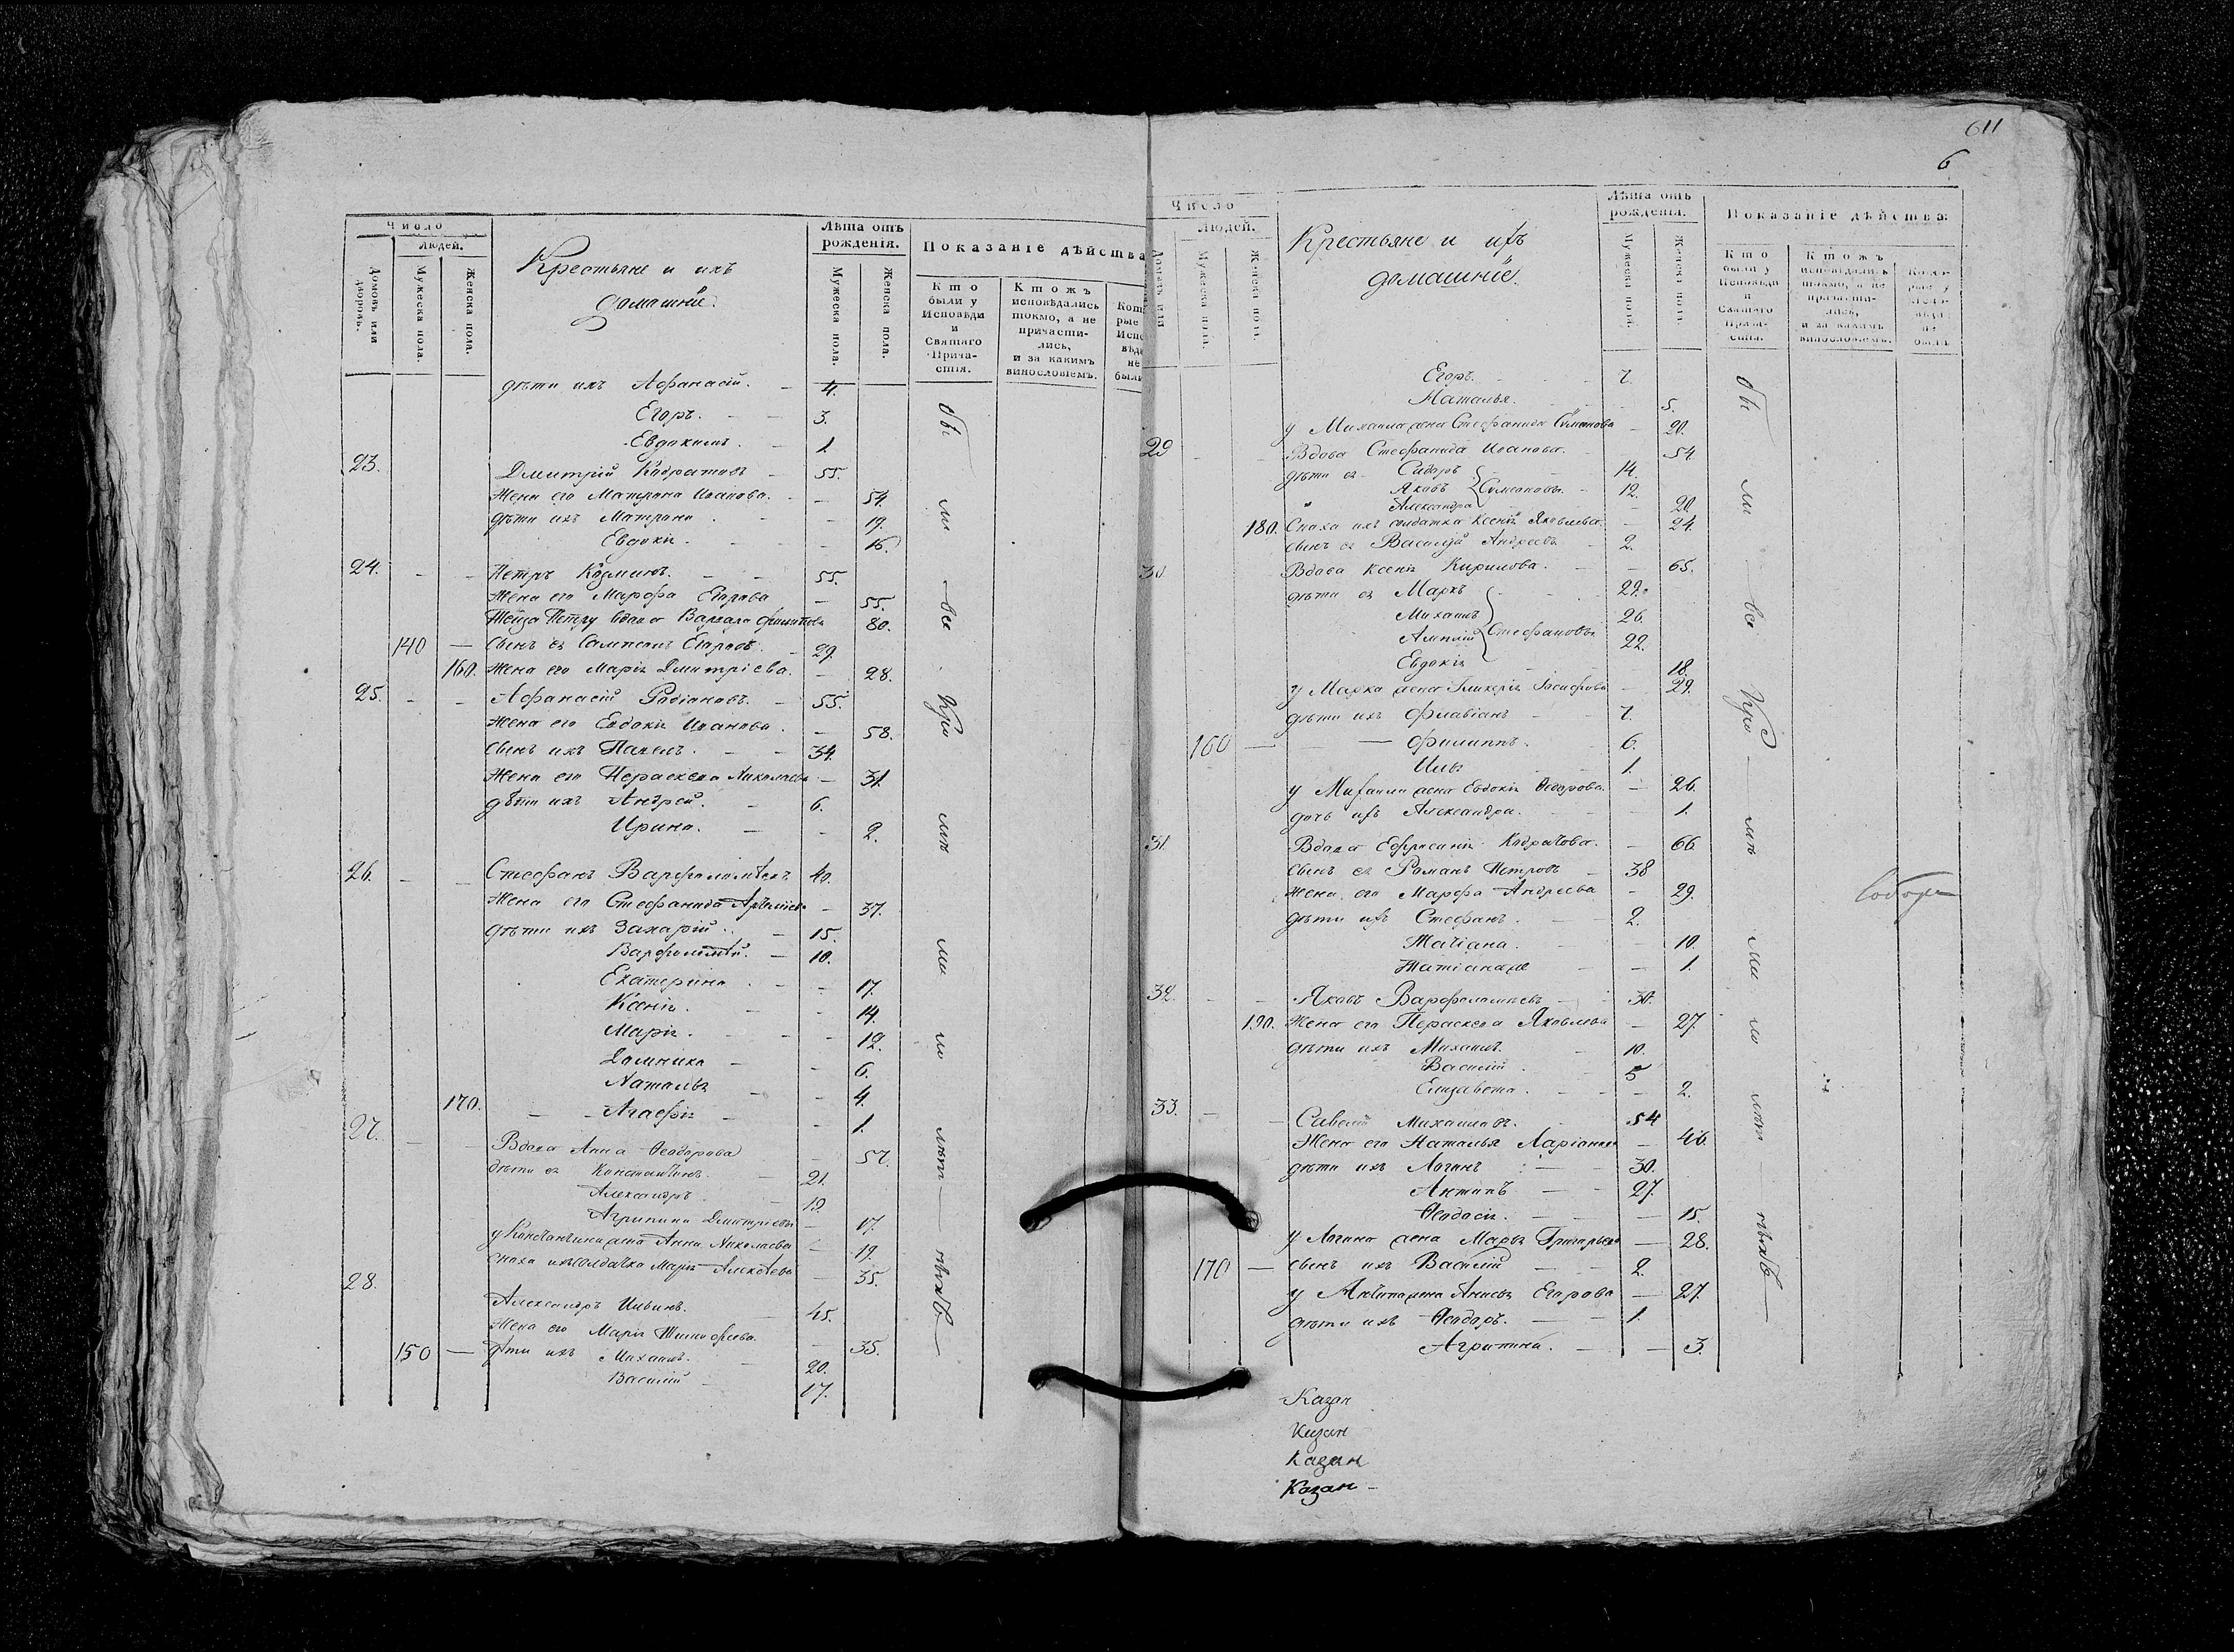 Число
Людей.
Домовъ или дворовъ.
Мужеска пола.
Женска пола.
Крестьяне и ихъ
домашніе.
Лѣта отъ
рожденія.
Мужеска пола.
Женска пола.
Показаніе дѣйства
Кто были у Исповѣди и Святаго Причастія.
Ктожъ исповѣдались токмо, а не причастились, и за какимъ винословіемъ.
дѣти ихъ Афанасій. 4.
Егоръ. 3.
Евдокимъ. 1.
23. Дмитрій Кодратовъ 55.
Жена его Матрона Иванова. 54.
дѣти ихъ Матрона 19.
Евдокія 16.
24. Петръ Козминъ. 55.
Жена его Марфа Егорова 55.
Теща Петру вдова Варвара 80.
140 Сынъ ея Сампсонъ Егоровъ. 29.
160. Жена его Марія Дмитріева. 28.
25. Афанасій Родіоновъ. 55.
Жена его Евдокія Иванова. 58.
Сынъ ихъ Павелъ. 34.
Жена его Пераскева Николаева 31.
дѣти ихъ Андрей. 6.
Ирина. 2.
26. Стефанъ Варфоломѣевъ 40.
Жена его Стефанида 37.
дѣти ихъ Захарій. 15.
Варфоломѣй. 10.
Екатерина 17.
Ксенія. 14.
Марія. 12.
Домника 6.
Наталья 4.
170. Агафія 1.
27. Вдова Анна Ѳеодорова 57.
дѣти ея Константинъ. 21.
Александръ 19.
Агрипина Дмитріевы 17.
у Константина жена Анна Николаева 19.
Сноха ихъ солдатка Марія Алексѣева 35.
28. Александръ Ильинъ. 45.
Жена его Марія Тимофеева. 35.
150 дѣти ихъ Михаилъ. 20.
Василій 17.
611
6
Число
Людей.
Мужеска пола.
Женска пола.
Крестьяне и ихъ
домашніе.
Лѣта отъ
рожденія.
Мужеска пола.
Женска пола.
Показаніе дѣйства:
Кто были у Исповѣди и Святаго Причастія.
Ктожъ исповѣдались токмо, а не причастились, и за какимъ винословіемъ.
Егоръ. 7.
Наталья. 5.
у Михаила жена Стефанида 20.
29 Вдова Стефанида Иванова. 54.
дѣти ея Сидоръ 14.
Яковъ Симеоновы 12.
Александра 20
180. Сноха ихъ солдатка Ксенія Яковлева. 24.
Сынъ ея Василій Андреевъ 2.
30. Вдова Ксенія Кирилова. 65.
дѣти ея Маркъ 29.
Михаилъ 26.
Стефановы 22.
Евдокія 18.
у Марка жена Гликерія 29.
дѣти ихъ Флавіанъ 7.
160 Филиппъ. 6.
Илья 1.
у Михаила жена Евдокія Ѳедорова. 26.
дочь ихъ Александра. 1.
31. Вдова Ефросинія Кодратова. 66.
Сынъ ея Романъ Петровъ 38
Жена его Марфа Андреева 29.
дѣти ихъ Стефанъ. 2.
Татіана. 10.
Татіана же 1.
32. Яковъ Варфоломѣевъ 30.
190. Жена его Пераскева Яковлева 27.
дѣти ихъ Михаилъ. 10.
Василій 5
Елизавета. 2.
33. Савелій Михаиловъ. 54
Жена его Наталья Ларіонова 46.
дѣти ихъ Логинъ 30.
Антипъ 27.
Ѳеодосія. 15.
у Логина жена Марья Григорьева 28.
170 Сынъ ихъ Василій 2.
у Антипа жена Анисья Егорова 27.
дѣти ихъ Ѳеодоръ. 1.
Агрипина. 3.
Казан
Казан
Казан
Казан